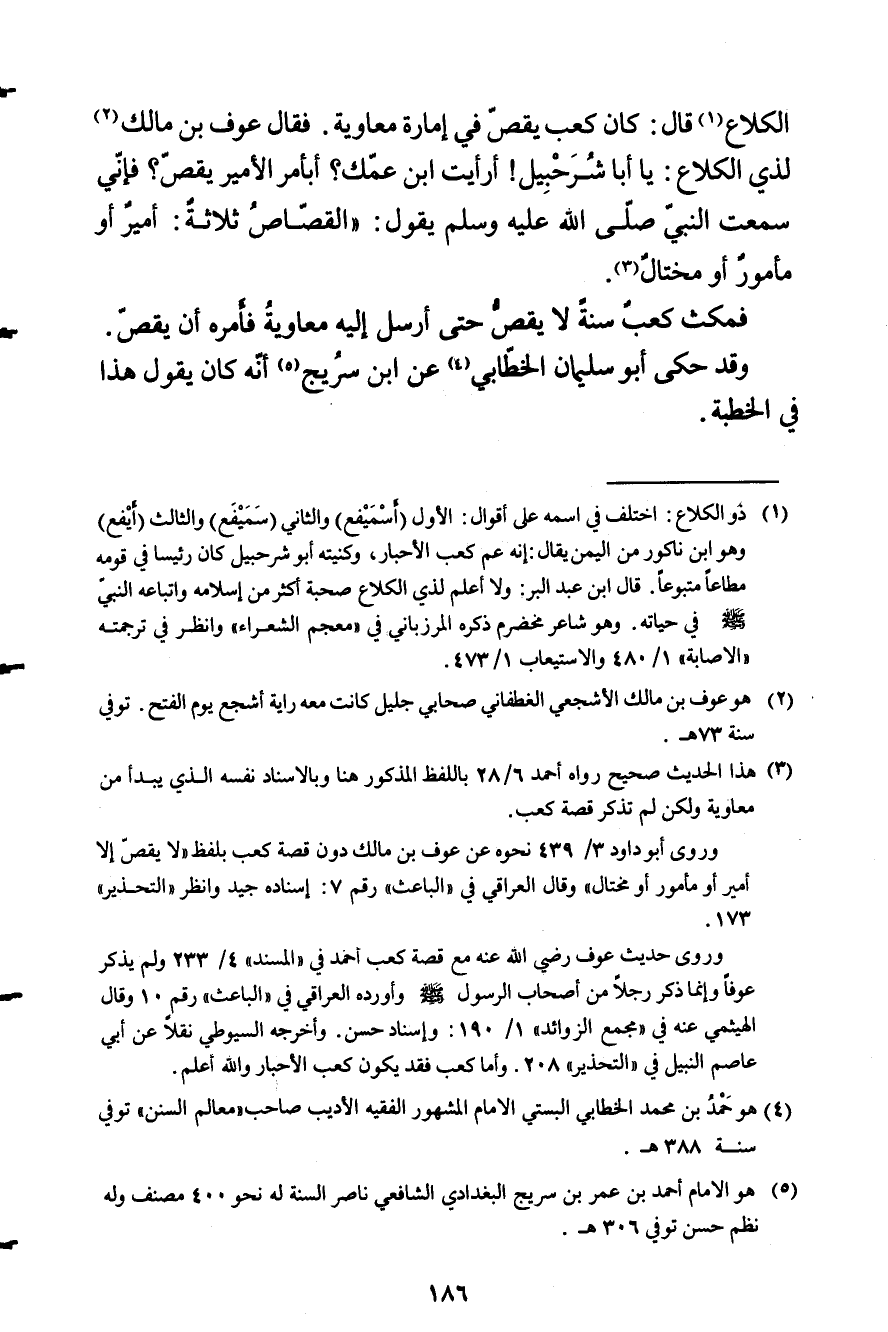 الكلاع(١) قال: كان كعب يقصّ في إمارة معاوية. فقال عوف بن مالك(٢)
لذي الكلاع: يا أبا شُرَحْبِيل! أرأيت ابن عمّك؟ أبأمر الأمير يقصّ؟ فإنّي
سمعت النبيّ صلّى الله عليه وسلم يقول: «القصّاصُ ثلاثةٌ: أميرٌ أو
مأمورٌ أو مختالٌ(٣).
فمكث كعبٌ سنةً لا يقصُّ حتى أرسل إليه معاويةُ فأَمره أن يقصّ.
وقد حكى أبو سليمان الخطّابي(٤) عن ابن سرُيج(٥) أنّه كان يقول هذا
في الخطبة.
(١) ذو الكلاع: اختلف في اسمه على أقوال: الأول (أَسْمَيْفع) والثاني (سَمَيْفَع) والثالث (أَيْفع)
وهو ابن ناكور من اليمن يقال: إنه عم كعب الأحبار، وكنيته أبو شرحبيل كان رئيسا في قومه
مطاعاً متبوعاً. قال ابن عبد البر: ولا أعلم لذي الكلاع صحبة أكثر من إسلامه واتباعه النبيّ
ﷺ في حياته. وهو شاعر مخضرم ذكره المرزباني في «معجم الشعراء» وانظر في ترجمته
«الاصابة» ١/ ٤٨٠ والاستيعاب ١/ ٤٧٣.
(٢) هو عوف بن مالك الأشجعي الغطفاني صحابي جليل كانت معه راية أشجع يوم الفتح. توفي
سنة ٧٣هـ.
(٣) هذا الحديث صحيح رواه أحمد ٢٨/٦ باللفظ المذكور هنا وبالاسناد نفسه الذي يبدأ من
معاوية ولكن لم تذكر قصة كعب.
وروى أبو داود ٣/ ٤٣٩ نحوه عن عوف بن مالك دون قصة كعب بلفظ «لا يقصّ إلا
أمير أو مأمور أو مختال» وقال العراقي في «الباعث» رقم ٧: إسناده جيد وانظر «التحذير»
١٧٣.
وروى حديث عوف رضي الله عنه مع قصة كعب أحمد في «المسند» ٤/ ٢٣٣ ولم يذكر
عوفاً وإنما ذكر رجلاً من أصحاب الرسول ﷺ وأورده العراقي في «الباعث» رقم ١٠ وقال
الهيثمي عنه في «مجمع الزوائد» ١/ ١٩٠: وإسناد حسن. وأخرجه السيوطي نقلاً عن أبي
عاصم النبيل في «التحذير» ٢٠٨. وأما كعب فقد يكون كعب الأحبار والله أعلم.
(٤) هو حَمْدُ بن محمد الخطابي البستي الامام المشهور الفقيه الأديب صاحب «معالم السنن» توفي
سنة ٣٨٨ هـ.
(٥) هو الامام أحمد بن عمر بن سريج البغدادي الشافعي ناصر السنة له نحو ٤٠٠ مصنف وله
نظم حسن توفي ٣٠٦ هـ.
١٨٦